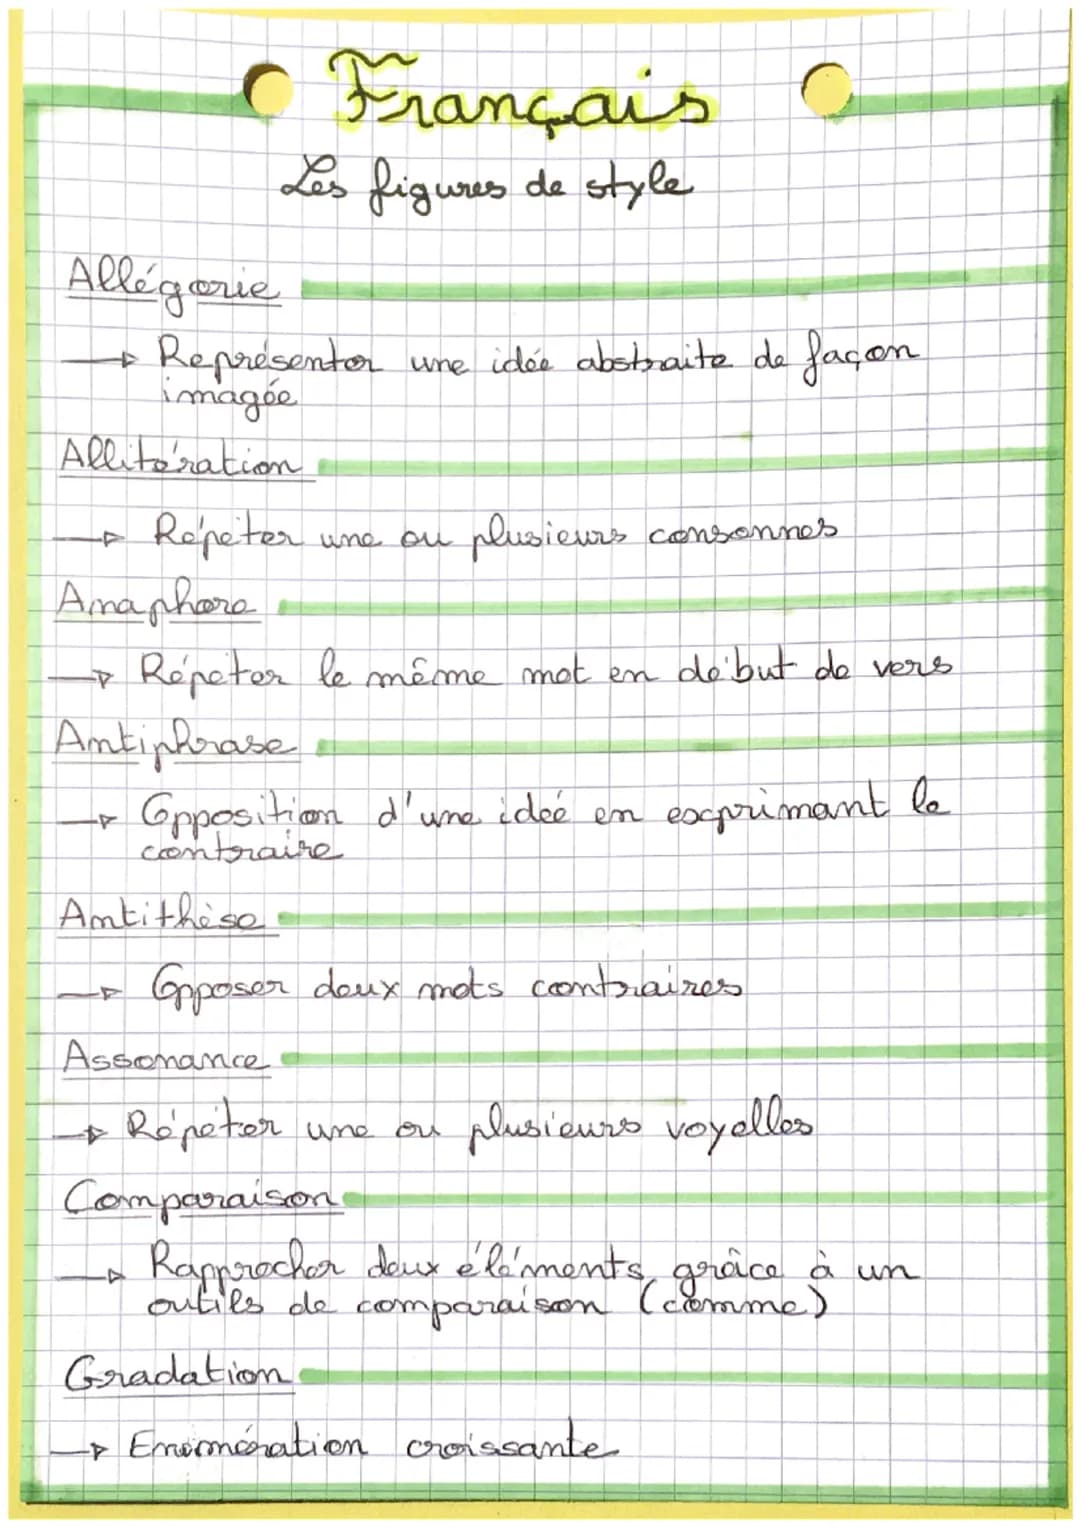 Français
Les figures de style
Allégorie
→ Représenter une idée abstraite de façon
imagée
Allitération
→ Répéter une ou plusieurs consonnes
Anaphore
→ Répéter le même mot en début de vers
Antiphrase
→ Opposition d'une idée en exprimant le
contraire
Antithèse
→ Opposer deux mots contraires
Assonance
→ Répéter une ou plusieurs voyelles
Comparaison
→ Rapprocher deux éléments grâce à un
outils de comparaison (comme)
Gradation
→ Enumération croissante